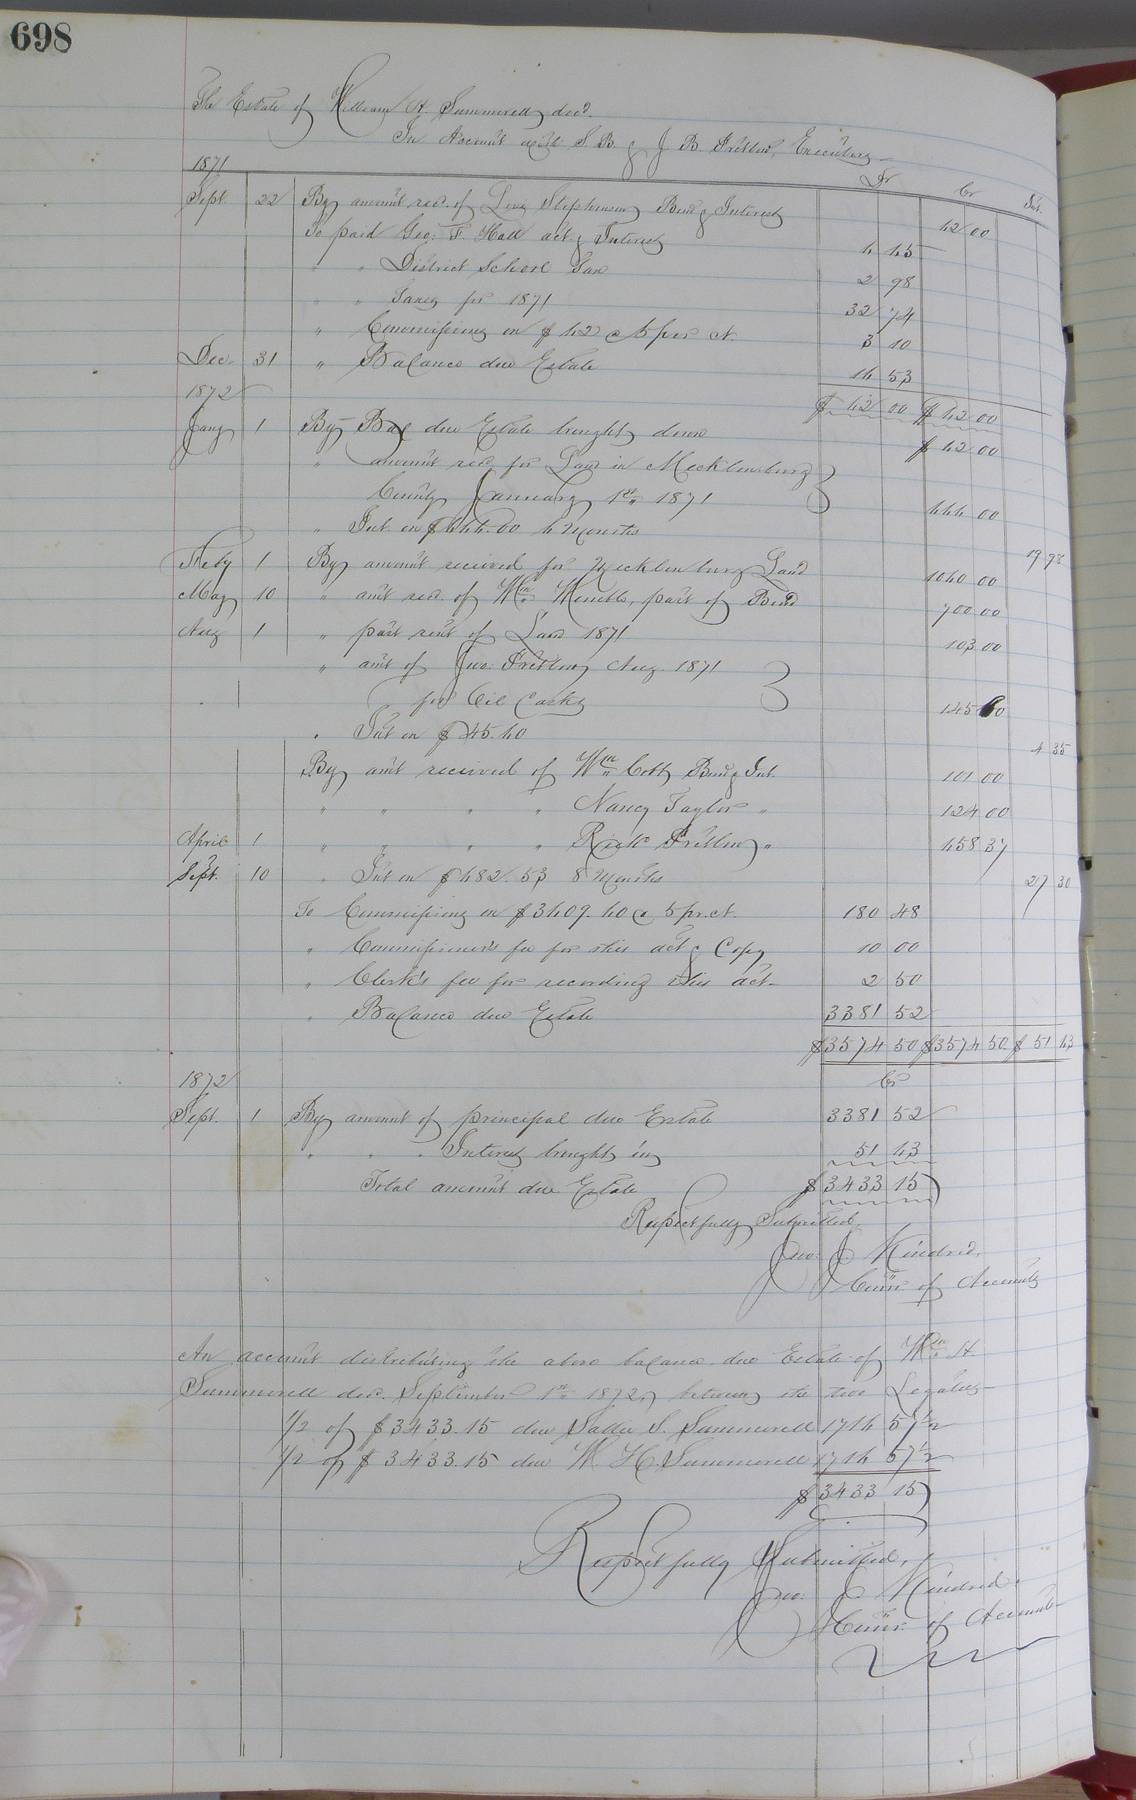 698
The Estate of William H. Summerell, decd.
In Account with S. B. & J. B. Pretlow, Executors
1871 Dr Cr Int.
Sept. 22 By amount recd. of Levi Stephenson Bond & Interest 62 00
To paid Geo. F. Hall act. & Interest 6 65
" " District School Tax 2 98
" " Taxes for 1871 32 74
" Commissions on $62 @ 5 per ct. 3 10
Dec. 31 " Balance due Estate 16 53
1872 $62 00 $62 00
Jany 1 By Bal due Estate brought down $62 00
" amount recd. for Land in Mecklenburg
County January 1st 1871 666 00
" Int. on $666.00 6 Months 19 98
Feby 1 By amount received for Mecklenburg Land 1060 00
May 10 " amt recd. of Wm. part of Bond 700 00
Aug 1 " part rent of Land 1871 103 00
" amt of Jno. Pretlow Aug. 1871
for Oil Casks 145 60
" Int on $145.60 4 35
By amt received of Wm. Cobb Bond & Int. 101 00
" " " " Nancy Taylor " 124 00
April 1 " " " " Richd. Pretlow " 658 37
Sept. 10 " Int on $682.53 8 Months 27 30
To Commissions on $3609.60 @ 5 pr. ct. 180 48
" Commissioner's fee for this act & Copy 10 00
" Clerk's fee for recording this act. 2 50
" Balance due Estate 3381 52
$3574 50 $3574 50 $51 63
1872 Cr
Sept. 1 By amount of principal due Estate 3381 52
" " " Interest brought in 51 63
Total amount due Estate $3433 15
Respectfully Submitted,
Jno. J. Kindred,
Comr. of Accounts
An account distributing the above balance due Estate of Wm. H.
Summerell decd. September 1st 1872, between the two Legatees
1/2 of $3433.15 due Sallie S. Summerell 1716 57 1/2
1/2 of $3433.15 due W. H. Summerell 1716 57 1/2
$3433 15
Respectfully Submitted,
Jno. J. Kindred,
Comr. of Accounts